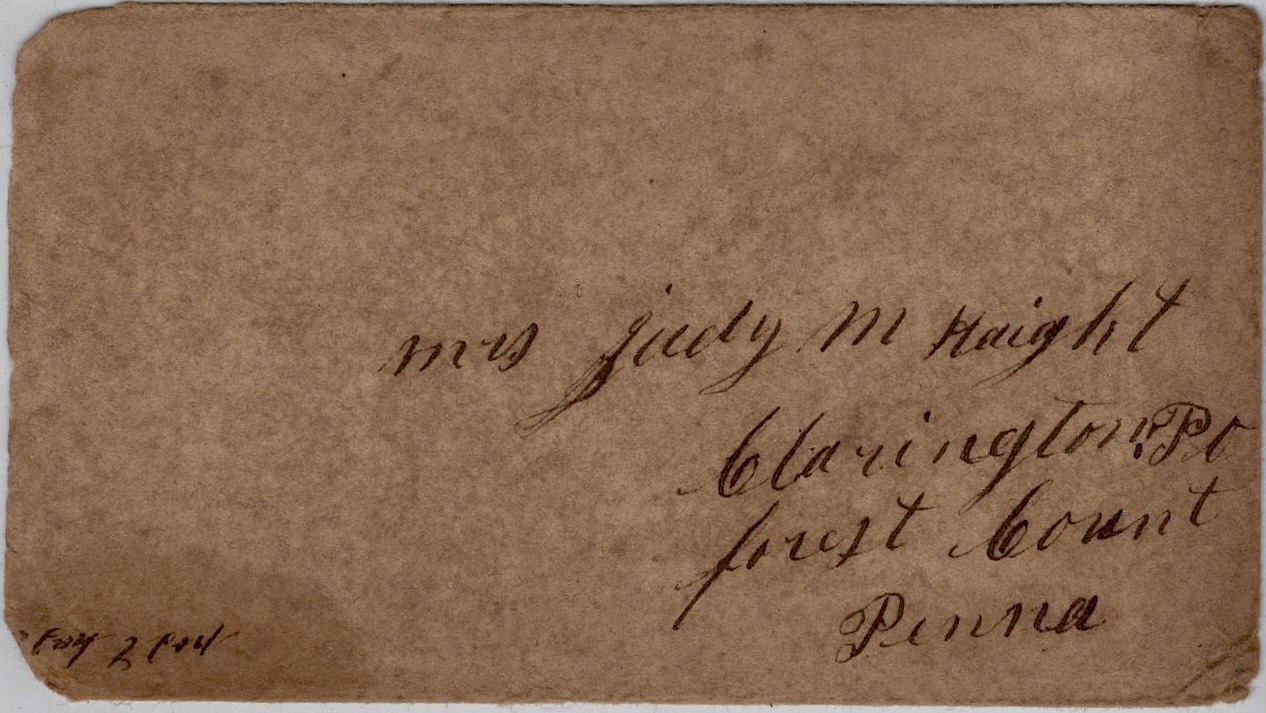 mrs Judy M Haight
Clarington PO
forest Count
Penna